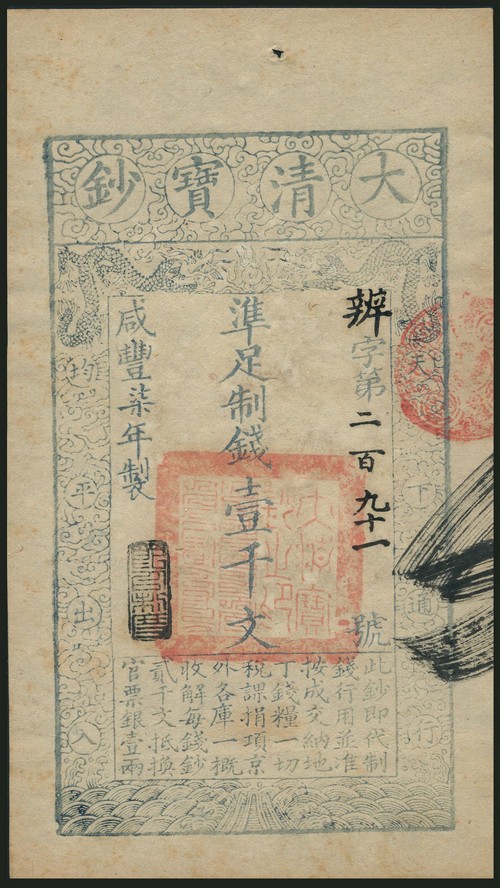 大清寶鈔
天下通行
均平出入
辦字第二百九十一號
準足制錢壹千文
咸豐柒年製
此鈔即代制
錢行用並准
按成交納地
丁錢糧一切
稅課捐項京
外各庫一概
收解每錢鈔
貳千文抵換
官票銀壹兩